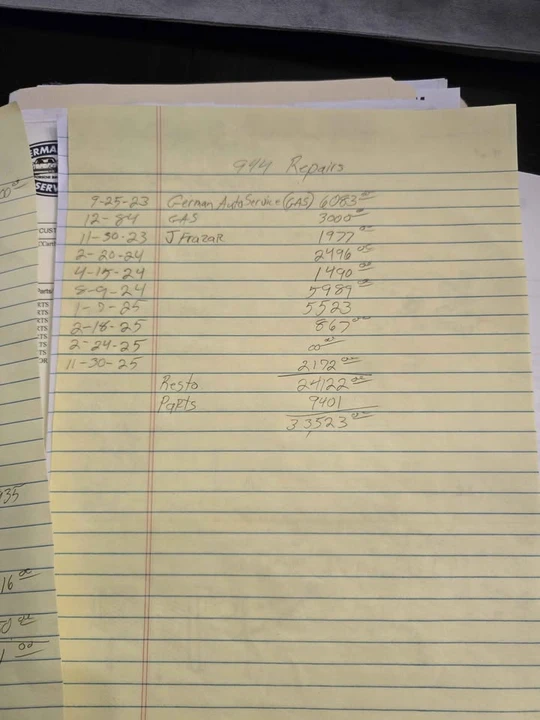 944 Repairs
9-25-23 German Auto Service (GAS) 6083 00
12-84 GAS 3000 00
11-30-23 J Frazar 1977 00
2-20-24 2496 00
4-15-24 1490 00
8-9-24 5989 00
1-7-25 5523
2-18-25 867 00
2-24-25 00 00
11-30-25 2172 00
Resto 24122 00
Parts 9401
33,523 00
ERMA
SERV
CUST
935
16 00
00